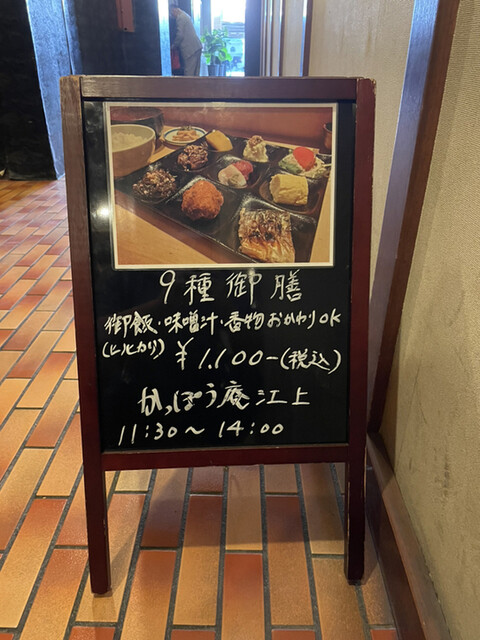 9種御膳
御飯・味噌汁・香物おかわりOK
(ヒノヒカリ)
¥1,100-(税込)
かっぽう庵江上
11:30〜14:00